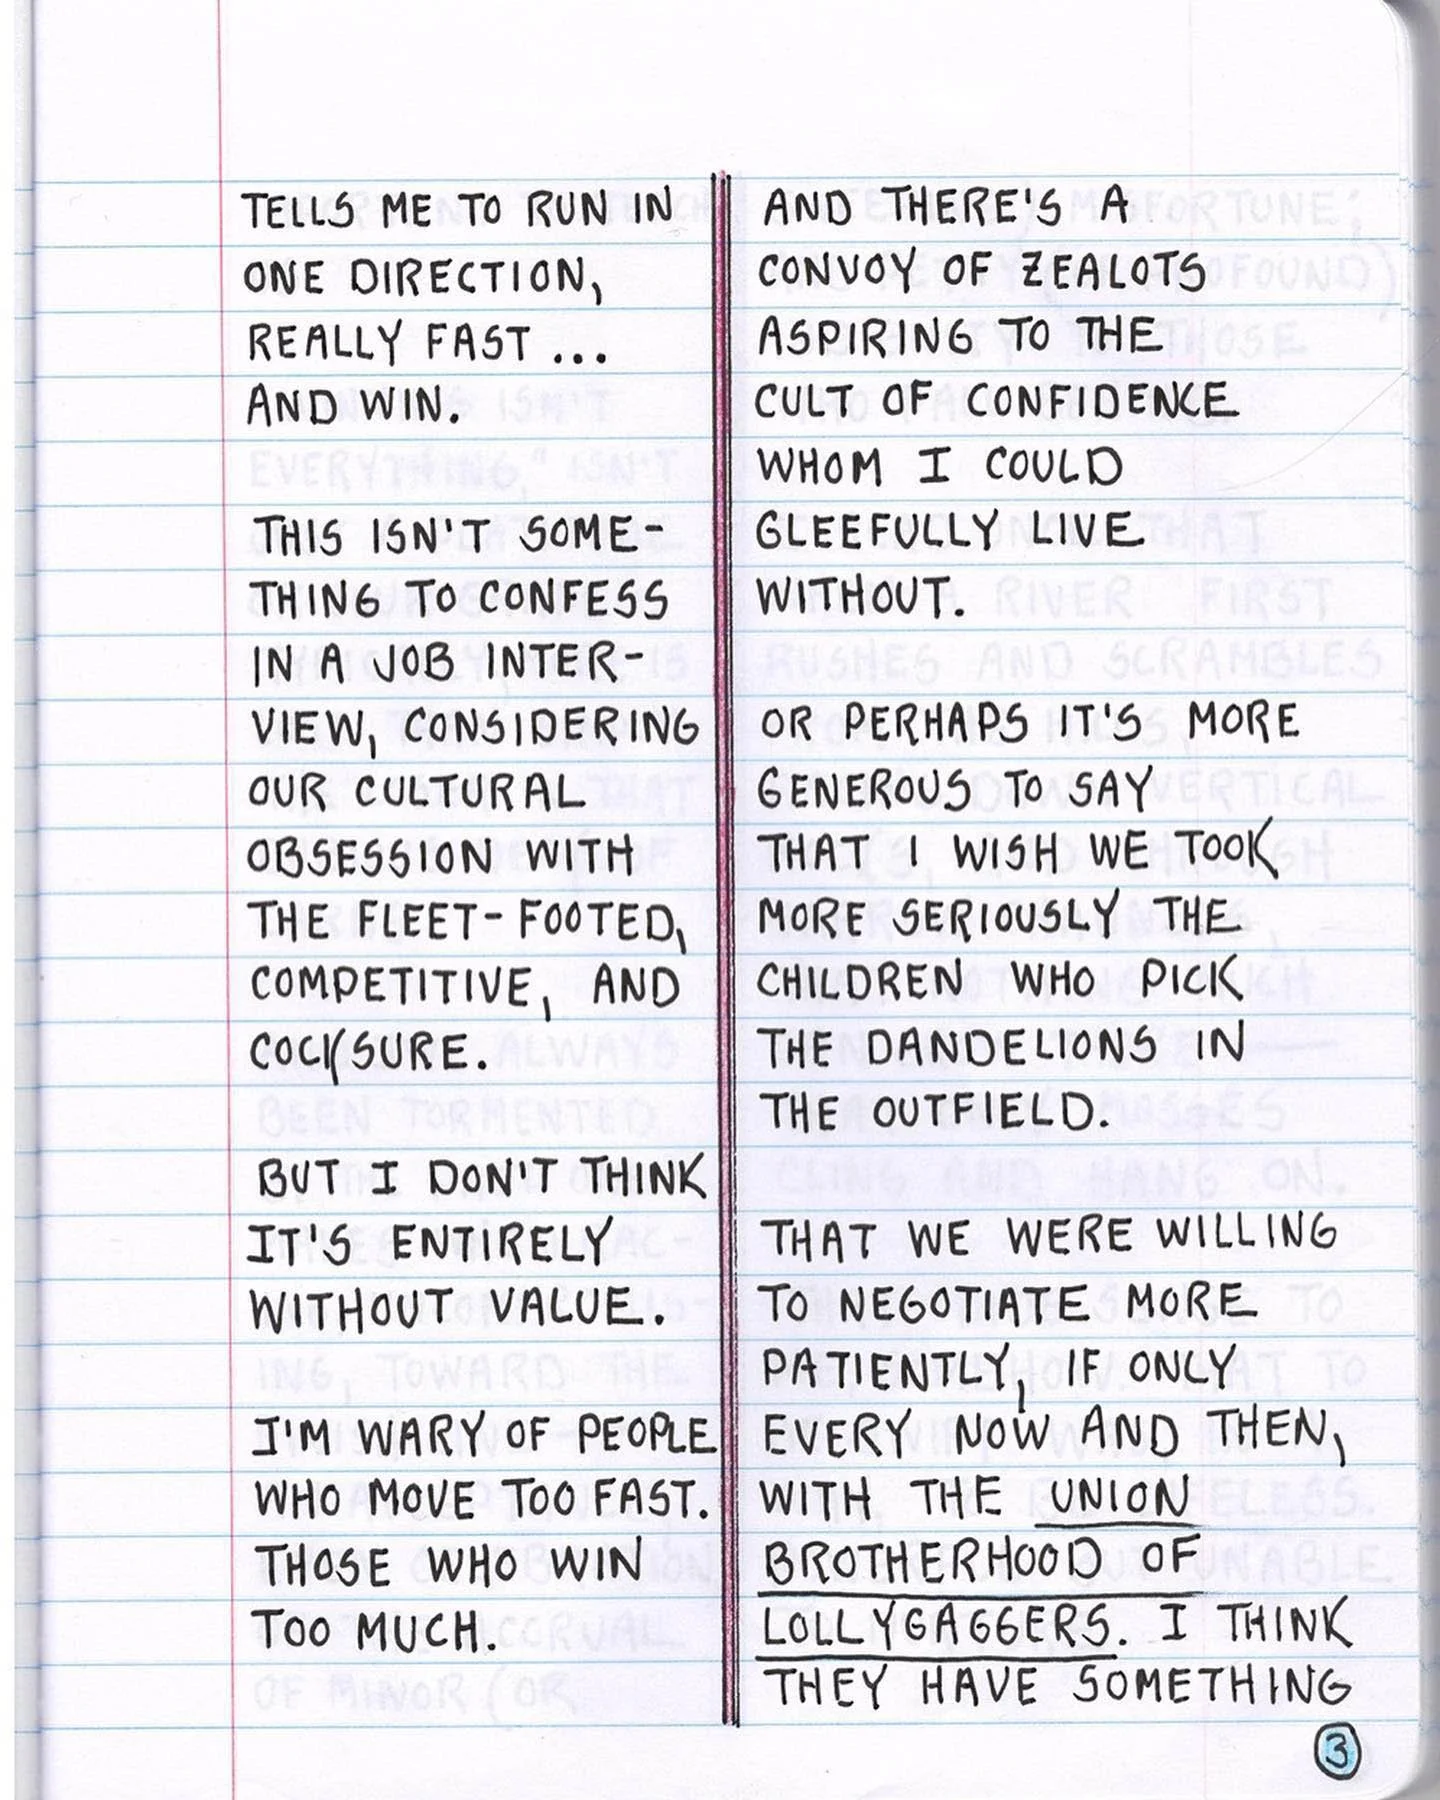 TELLS ME TO RUN IN
ONE DIRECTION,
REALLY FAST...
AND WIN.
THIS ISN'T SOME-
THING TO CONFESS
IN A JOB INTER-
VIEW, CONSIDERING
OUR CULTURAL
OBSESSION WITH
THE FLEET-FOOTED,
COMPETITIVE, AND
COCKSURE.
BUT I DON'T THINK
IT'S ENTIRELY
WITHOUT VALUE.
I'M WARY OF PEOPLE
WHO MOVE TOO FAST.
THOSE WHO WIN
TOO MUCH.
AND THERE'S A
CONVOY OF ZEALOTS
ASPIRING TO THE
CULT OF CONFIDENCE
WHOM I COULD
GLEEFULLY LIVE
WITHOUT.
OR PERHAPS IT'S MORE
GENEROUS TO SAY
THAT I WISH WE TOOK
MORE SERIOUSLY THE
CHILDREN WHO PICK
THE DANDELIONS IN
THE OUTFIELD.
THAT WE WERE WILLING
TO NEGOTIATE MORE
PATIENTLY, IF ONLY
EVERY NOW AND THEN,
WITH THE UNION
BROTHERHOOD OF
LOLLYGAGGERS. I THINK
THEY HAVE SOMETHING
3